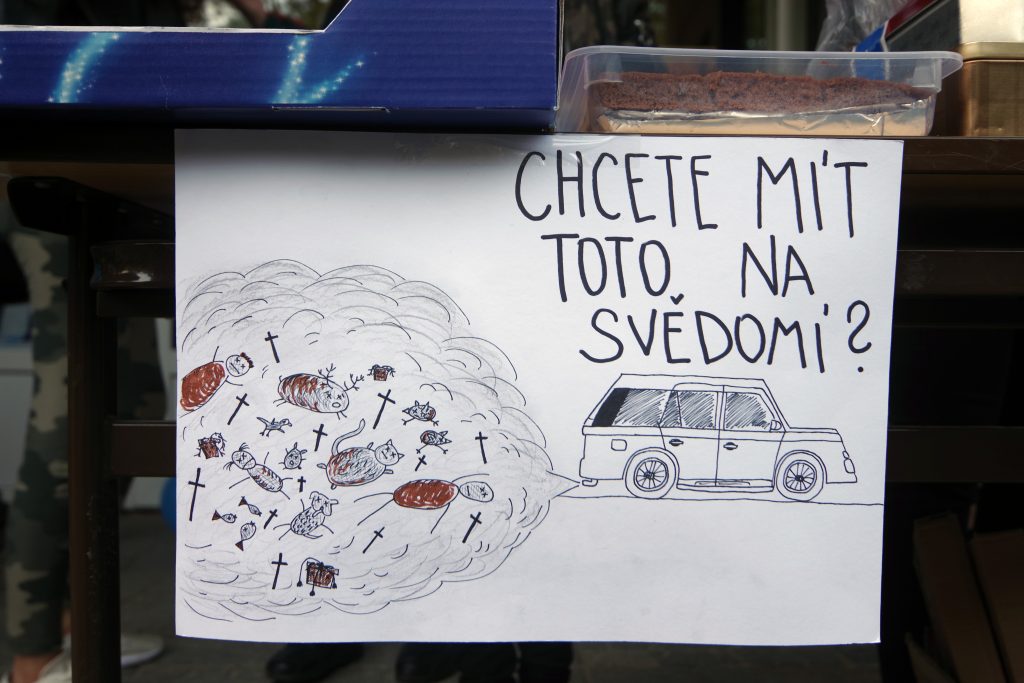 CHCETE MÍT
TOTO NA
SVĚDOMÍ?